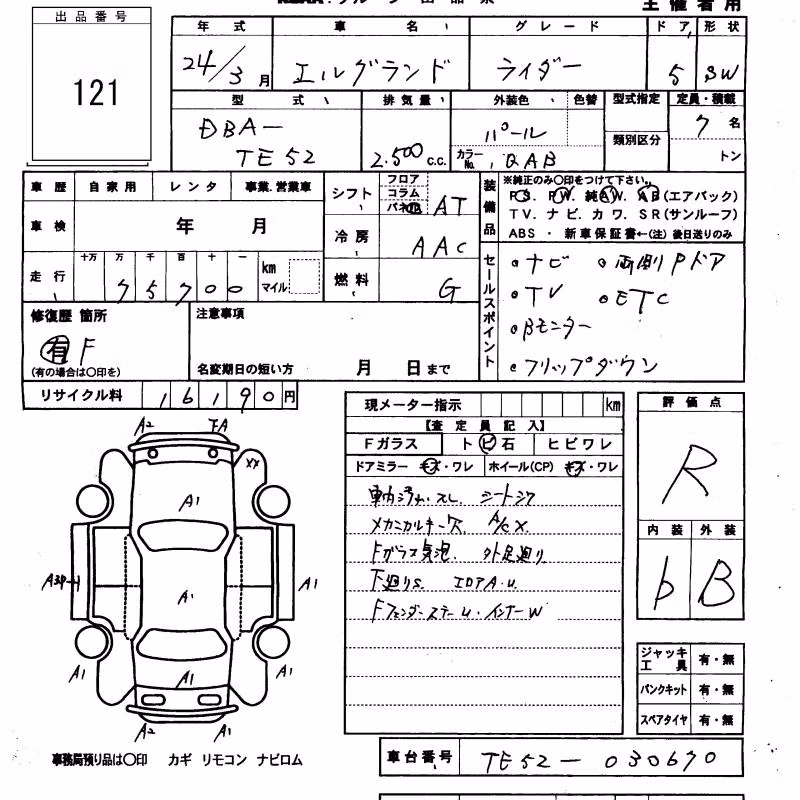 出品番号
121
主催者用
年式 車名 グレード ドア 形状
24/3月 エルグランド ライダー 5 SW
型式 排気量 外装色 色替 型式指定 定員・積載
類別区分
DBA-TE52 2.500c.c. パール カラーNo. QAB 7名
トン
車歴 自家用 レンタ 事業.営業車
シフト フロア コラム パネル AT
車検 年 月
冷房 AAC
走行 十万 万 千 百 十 一 km マイル
75700
燃料 G
装備品
※純正のみ〇印をつけて下さい。
PS. PW. 純AW. AB(エアバック)
TV. ナビ. カワ. SR(サンルーフ)
ABS ・ 新車保証書←(注) 後日送りのみ
セールスポイント
・ナビ ・両側Pドア
・TV ・ETC
・Bモニター
・フリップダウン
修復歴 箇所
有 F
(有の場合は〇印を)
注意事項
名変期日の短い方 月 日まで
リサイクル料 16190円
現メーター指示 km
【査定員記入】
Fガラス トビ石 ヒビワレ
ドアミラー キズ・ワレ ホイール(CP) キズ・ワレ
車内汚れ・スレ シートシワ
メカニカルキー欠 A/C X
Fガラス気泡 外足廻り
下廻りS
Fフェンダーステー U・インナーW
評価点
R
内装 外装
b B
ジャッキ工具 有・無
パンクキット 有・無
スペアタイヤ 有・無
A2
XX
A1
A1
A1
A1
A1
A1
A2
A2
事務局預り品は〇印 カギ リモコン ナビロム
車台番号 TE52-030670